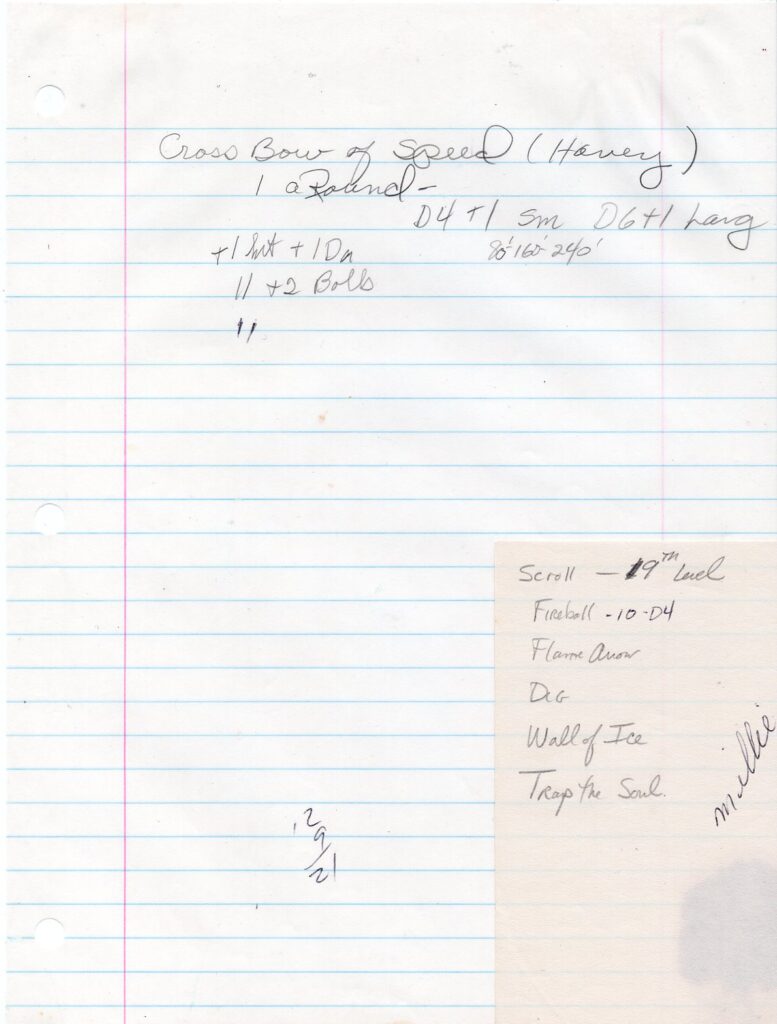 Cross Bow of Speed (Havey)
1 a Round -
D4 +1 Sm D6 +1 Larg
+1 hit +1 Da
80' 160' 240'
11 +2 Bolts
11
Scroll - 19TH Level
Fireball - 10 - D4
Flame Arrow
DIG
Wall of Ice
Trap the Soul.
millie
12
9
21